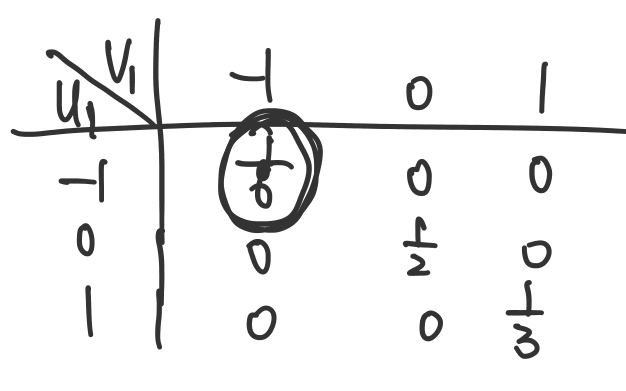 V₁ U₁ -1 0 1
-1 1/6 0 0
0 0 1/2 0
1 0 0 1/3